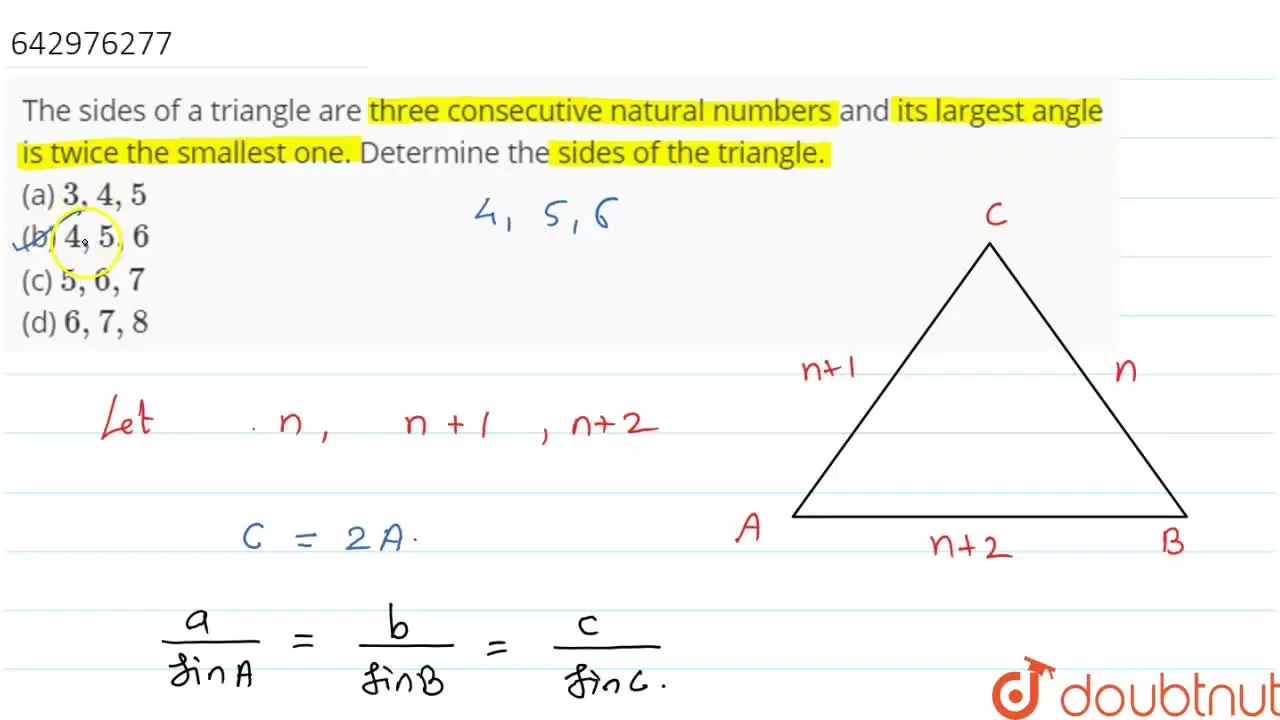 642976277
The sides of a triangle are three consecutive natural numbers and its largest angle
is twice the smallest one. Determine the sides of the triangle.
(a) 3, 4, 5
(b) 4, 5, 6
(c) 5, 6, 7
(d) 6, 7, 8
4, 5, 6
C
n+1
n
Let n, n+1, n+2
A
n+2
B
C = 2A.
a/sinA = b/sinB = c/sinC.
doubtnut